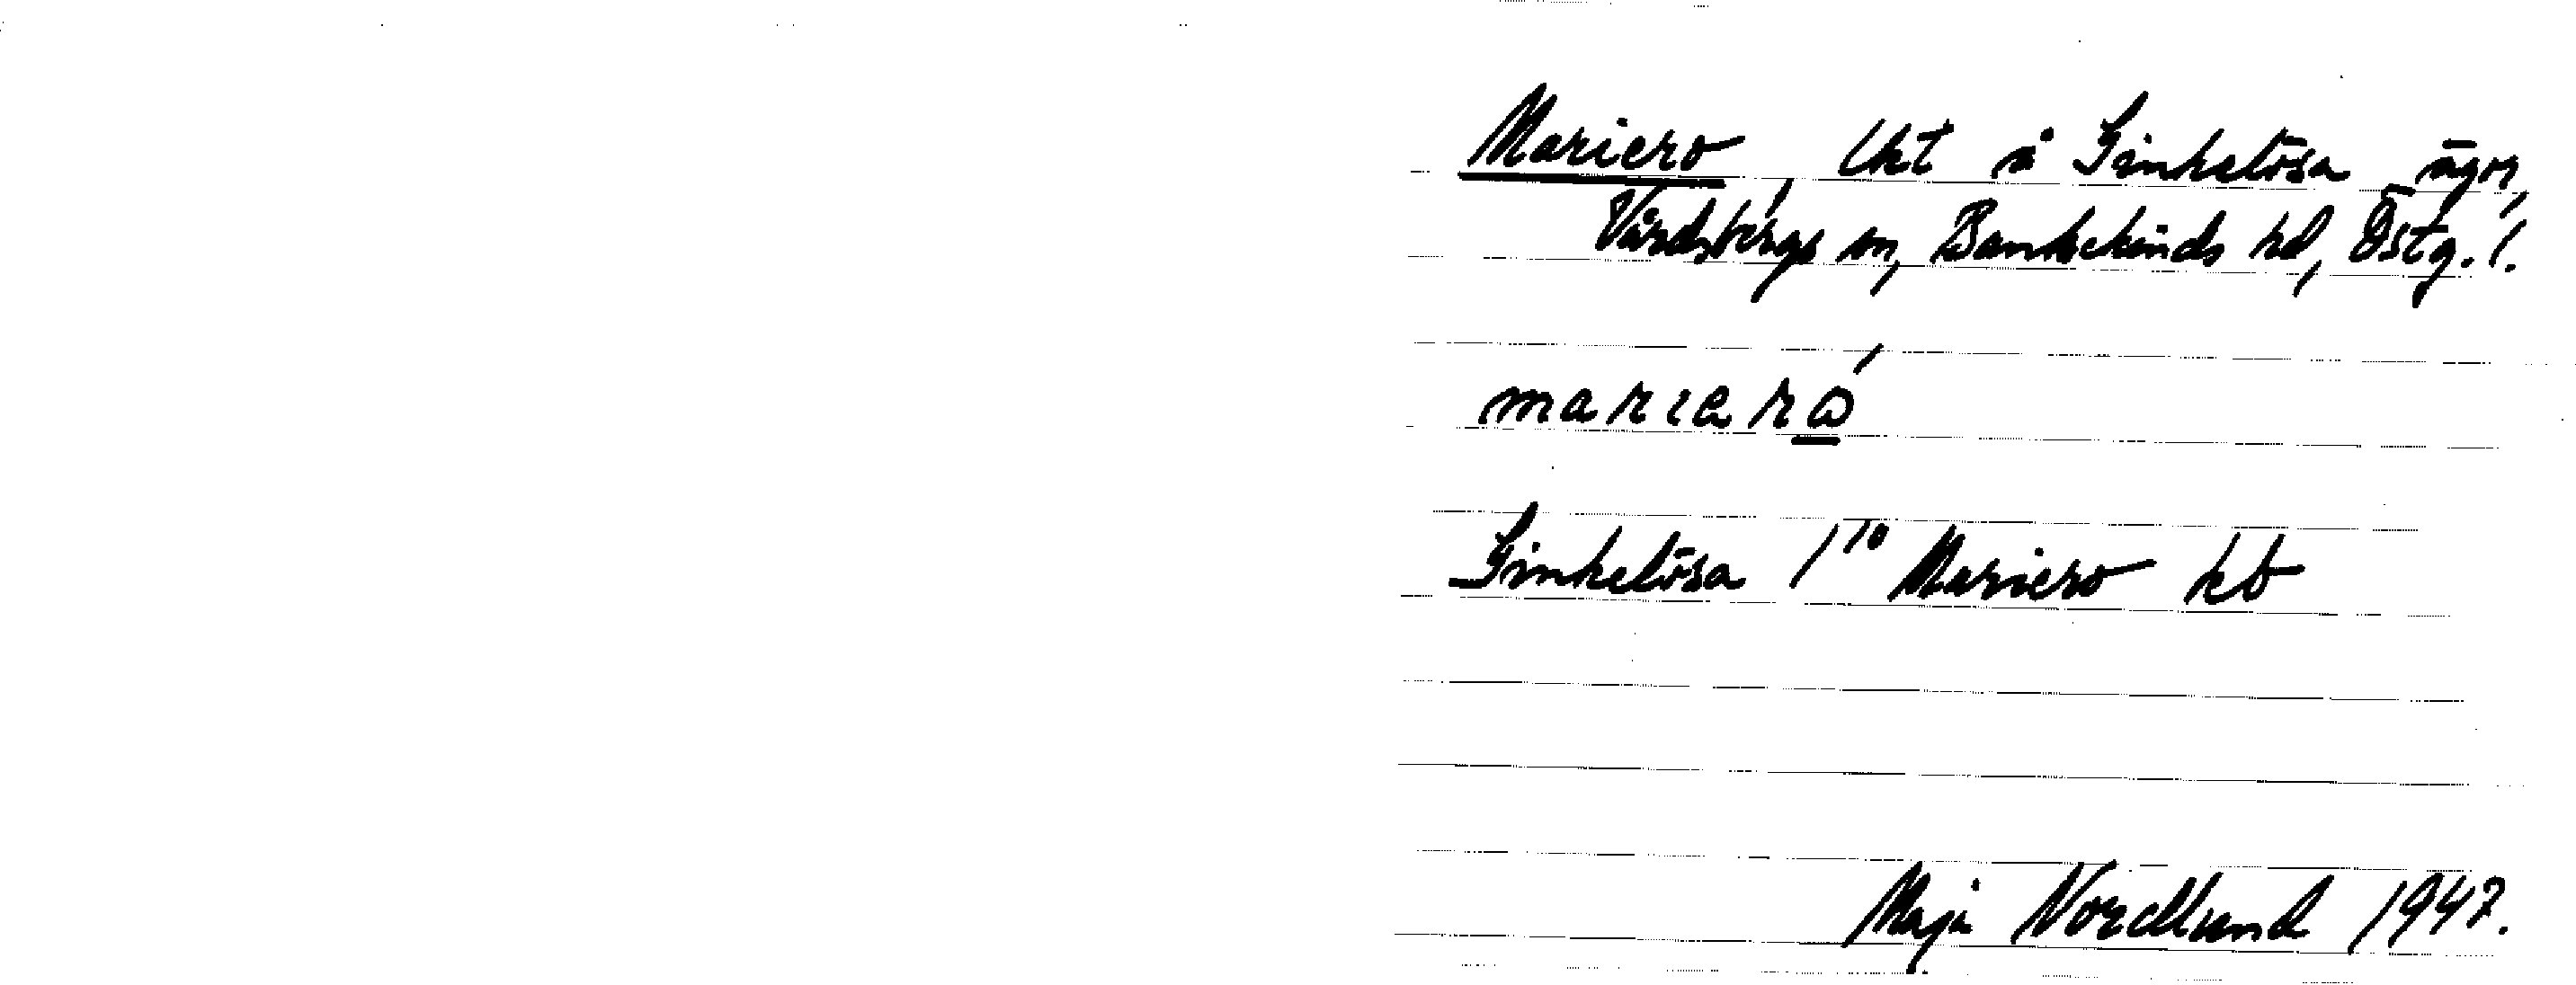 Mariero, Lht å Ginkelösa ägor,
Vårdsbergs sn, Bankekinds hd, Östg. l.
marıeró
Ginkelösa 1¹⁰ Mariero kb
Maja Nordlund 1947.